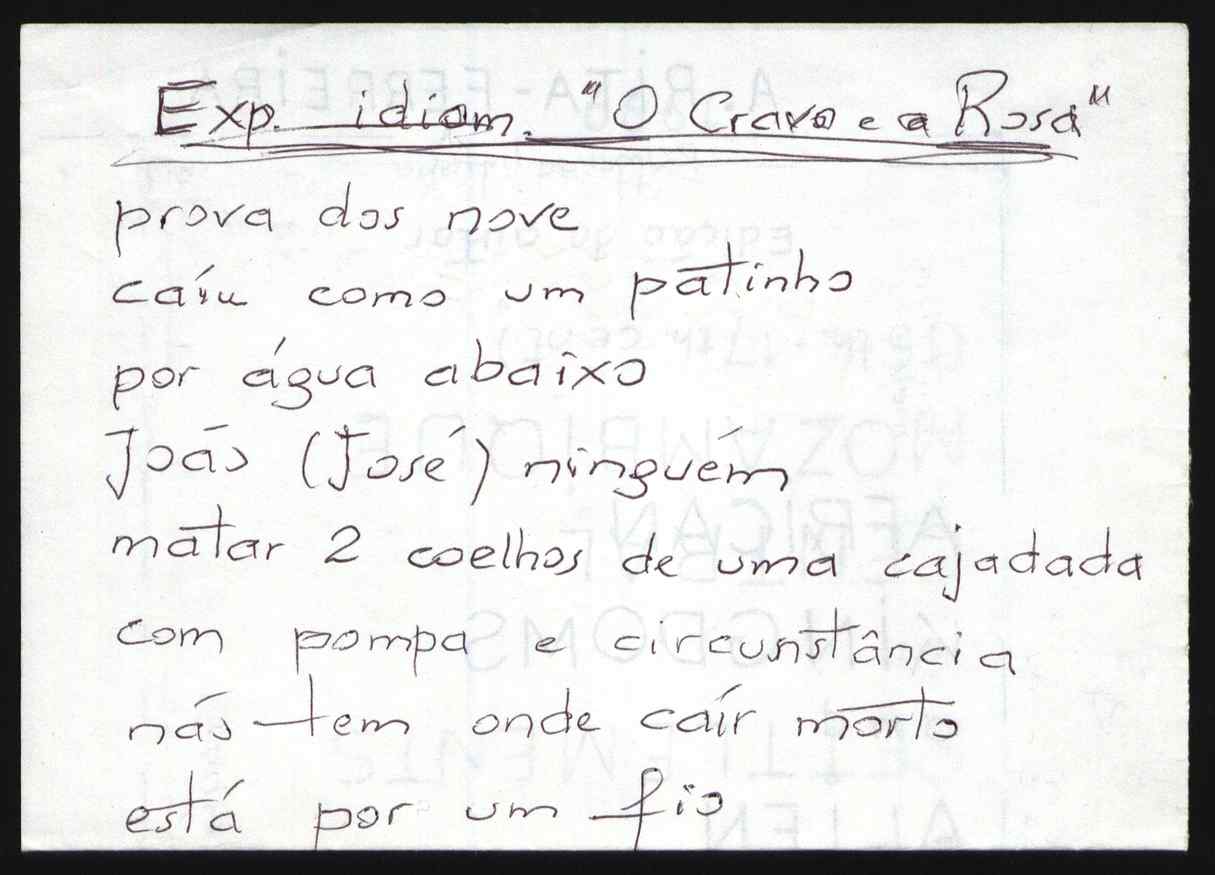 Exp. idiom. "O Cravo e a Rosa"
prova dos nove
caíu como um patinho
por água abaixo
João (José) ninguém
matar 2 coelhos de uma cajadada
com pompa e circunstância
não tem onde caír morto
está por um fio